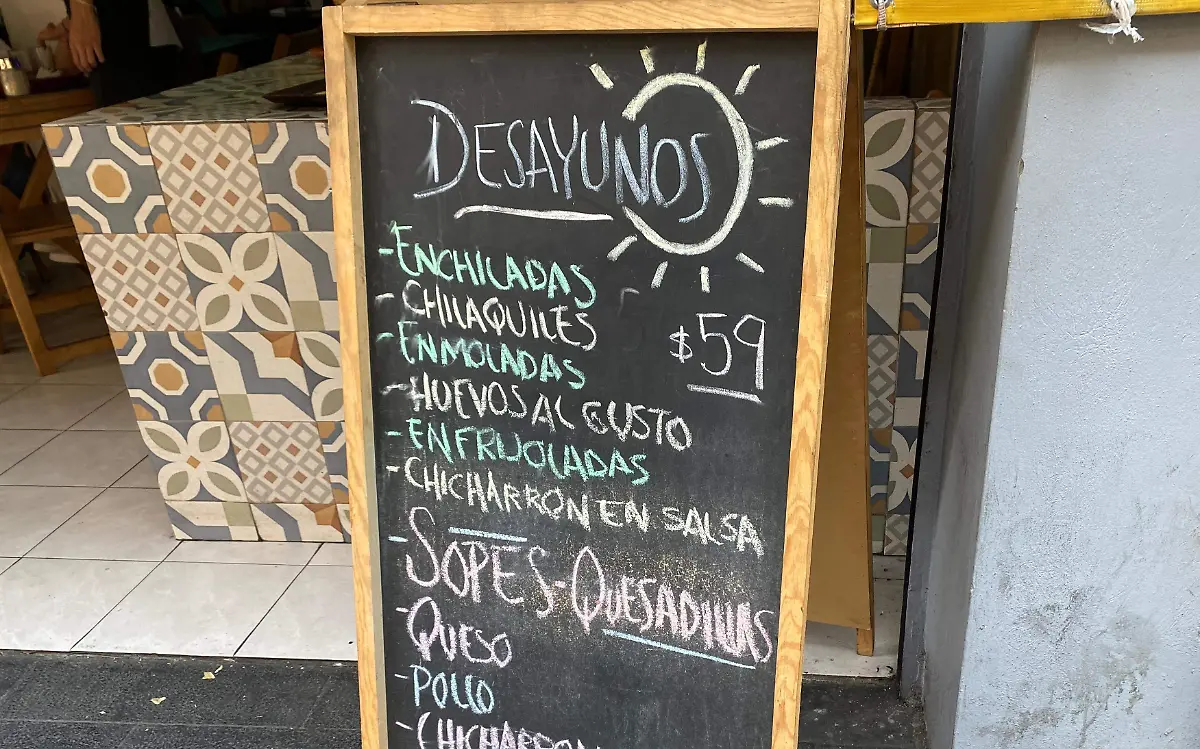 DESAYUNOS
-ENCHILADAS
-CHILAQUILES
-ENMOLADAS
$59
-HUEVOS AL GUSTO
-ENFRIJOLADAS
-CHICHARRÓN EN SALSA
-SOPES-QUESADILLAS
-QUESO
-POLLO
-CHICHARRON